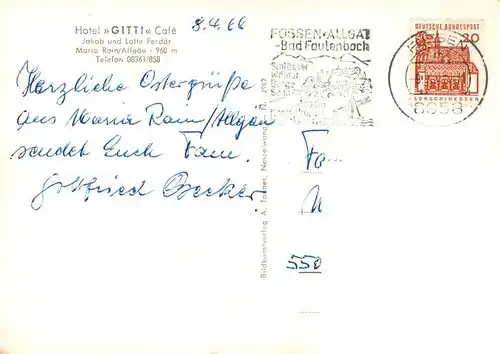 Hotel »GITTI« Café
Jakob und Lotte Ferdár
Maria Rain/Allgäu - 960 m
Telefon 08361/858
8.4.66
Herzliche Ostergrüße
aus Maria Rain/Allgäu
sendet Euch Fam.
Gottfried Becker
FÜSSEN·ALLGÄU
-Bad Faulenbach
Schlösser
Wälder
Berge
Seen
FÜSSEN
8958
DEUTSCHE BUNDESPOST
20
LORSCH/HESSEN
Fa
550
Bildkunstverlag A. Tanner, Nesselwang